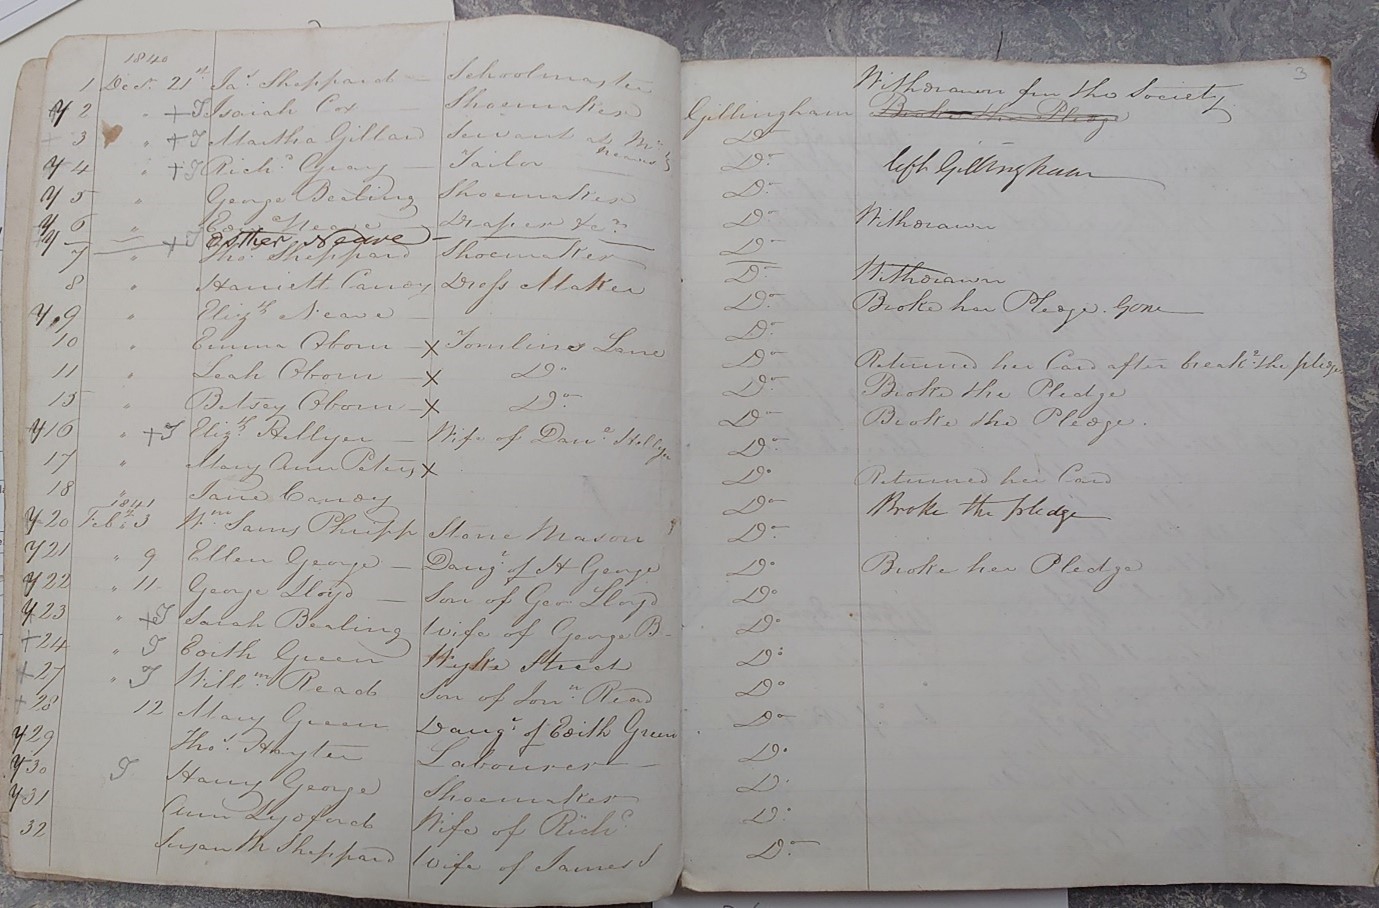 1840
1 Decr. 21st Jas. Sheppard — Schoolmaster Gillingham Withdrawn from the Society
Y 2 " + T Isaiah Cox — Shoemaker Do. Broke the Pledge
3 " + T Martha Gillard Servant at Mr. Do.
Y 4 " + T Richd. Gray — Tailor Do. left Gillingham
Y 5 " George Berling Shoemaker Do.
Y 6 " Edwd. Neave — Draper &c. Do. Withdrawn
Y — + T Esther Neave —
7 " Thos. Sheppard Shoemaker Do.
8 " Harriett Candy Dress Maker Do. Withdrawn
Y 9 " Elizth. Neave — Do. Broke her Pledge. Gone
10 " Emma Oborn — x Tomlins Lane Do.
11 " Leah Oborn — x Do. Do. Returned her Card after breakg. the pledge
15 " Betsey Oborn — x Do. Do. Broke the Pledge
Y 16 " + T Elizth. Hellyer — Wife of Danl. Hellyer Do. Broke the Pledge.
17 " Mary Ann Peters x Do.
18 " Jane Candy Do. Returned her Card
1841
Y 20 Feb. 3 Wm. Sams Phripp Stone Mason Do. Broke the pledge
Y 21 " 9 Ellen George — Daugr. of H George Do.
Y 22 " 11 George Lloyd — Son of Geo Lloyd Do. Broke her Pledge
Y 23 " + T Sarah Berling Wife of George B— Do.
+ 24 " T Edith Green Wyke Street Do.
+ 27 " T Willm. Read Son of Jonn. Read Do.
+ 28 12 Mary Green Daugr. of Edith Green Do.
Y 29 Thos. Hayter Labourer — Do.
Y 30 T Harry George Shoemaker Do.
Y 31 Ann Lydford Wife of Richd. Do.
32 Susan M Sheppard Wife of James S Do.
3